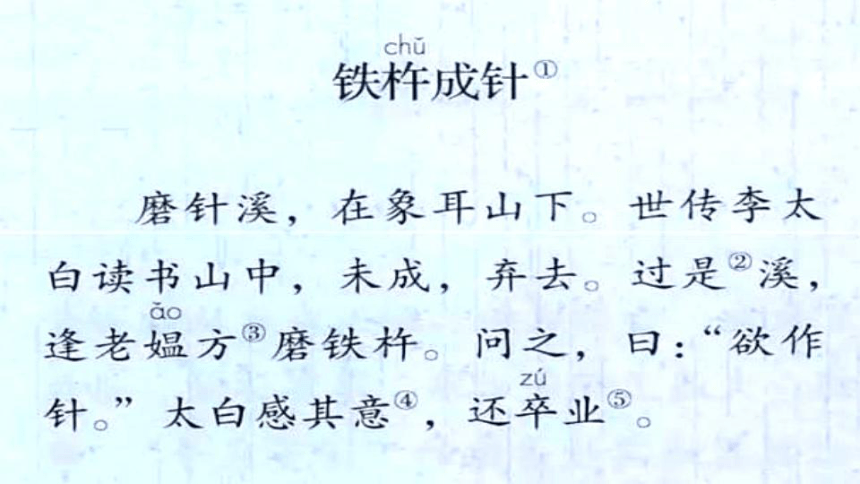 chǔ
铁杵成针①
磨针溪，在象耳山下。世传李太
白读书山中，未成，弃去。过是②溪，
ǎo
逢老媪方③磨铁杵。问之，曰：“欲作
zú
针。”太白感其意④，还卒业⑤。